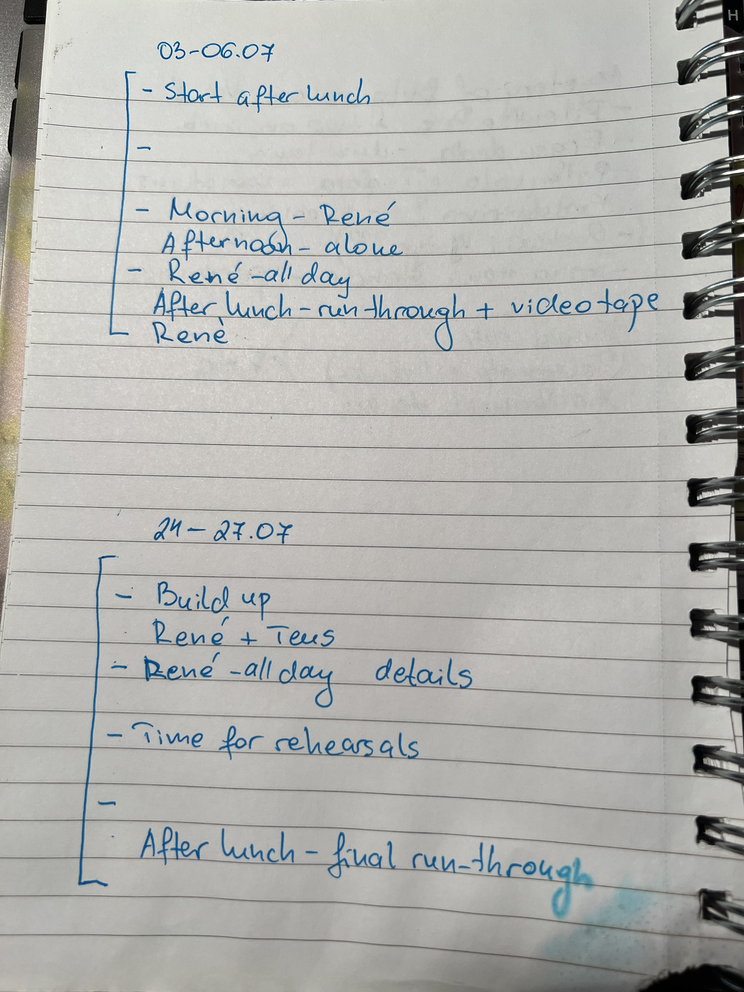 03-06.07
- Start after lunch
-
- Morning - René
Afternoon - alone
- René - all day
After lunch - run-through + videotape
René
24 - 27.07
- Build up
René + Teus
- René - all day details
- Time for rehearsals
-
After lunch - final run-through
H